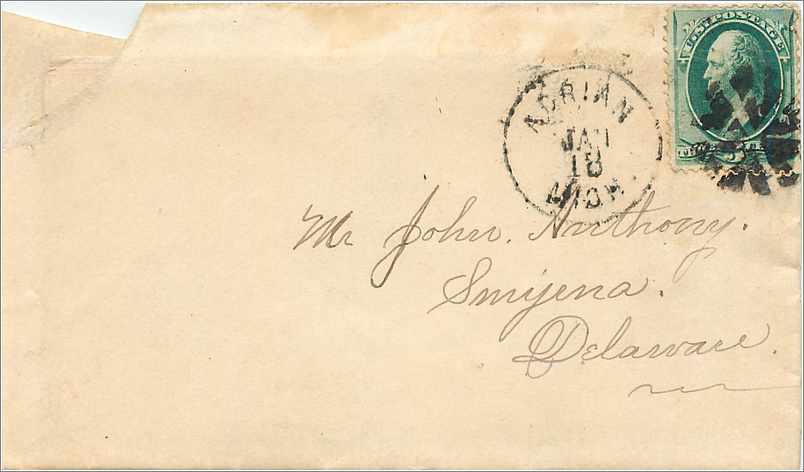 U.S. POSTAGE
ADRIAN
JAN
18
MICH.
Mr John. Anthony.
Smyena.
Delaware.